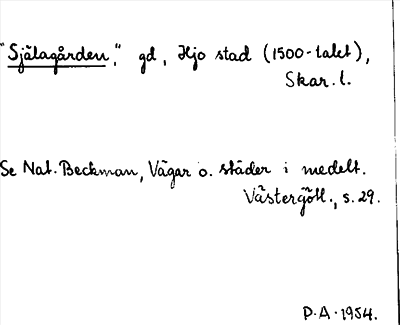 "Själagården," gd, Hjo stad (1500-talet),
Skar. l.
Se Nat. Beckman, Vägar o. städer i medelt.
Västergötl., s. 29.
P.A. 1954.